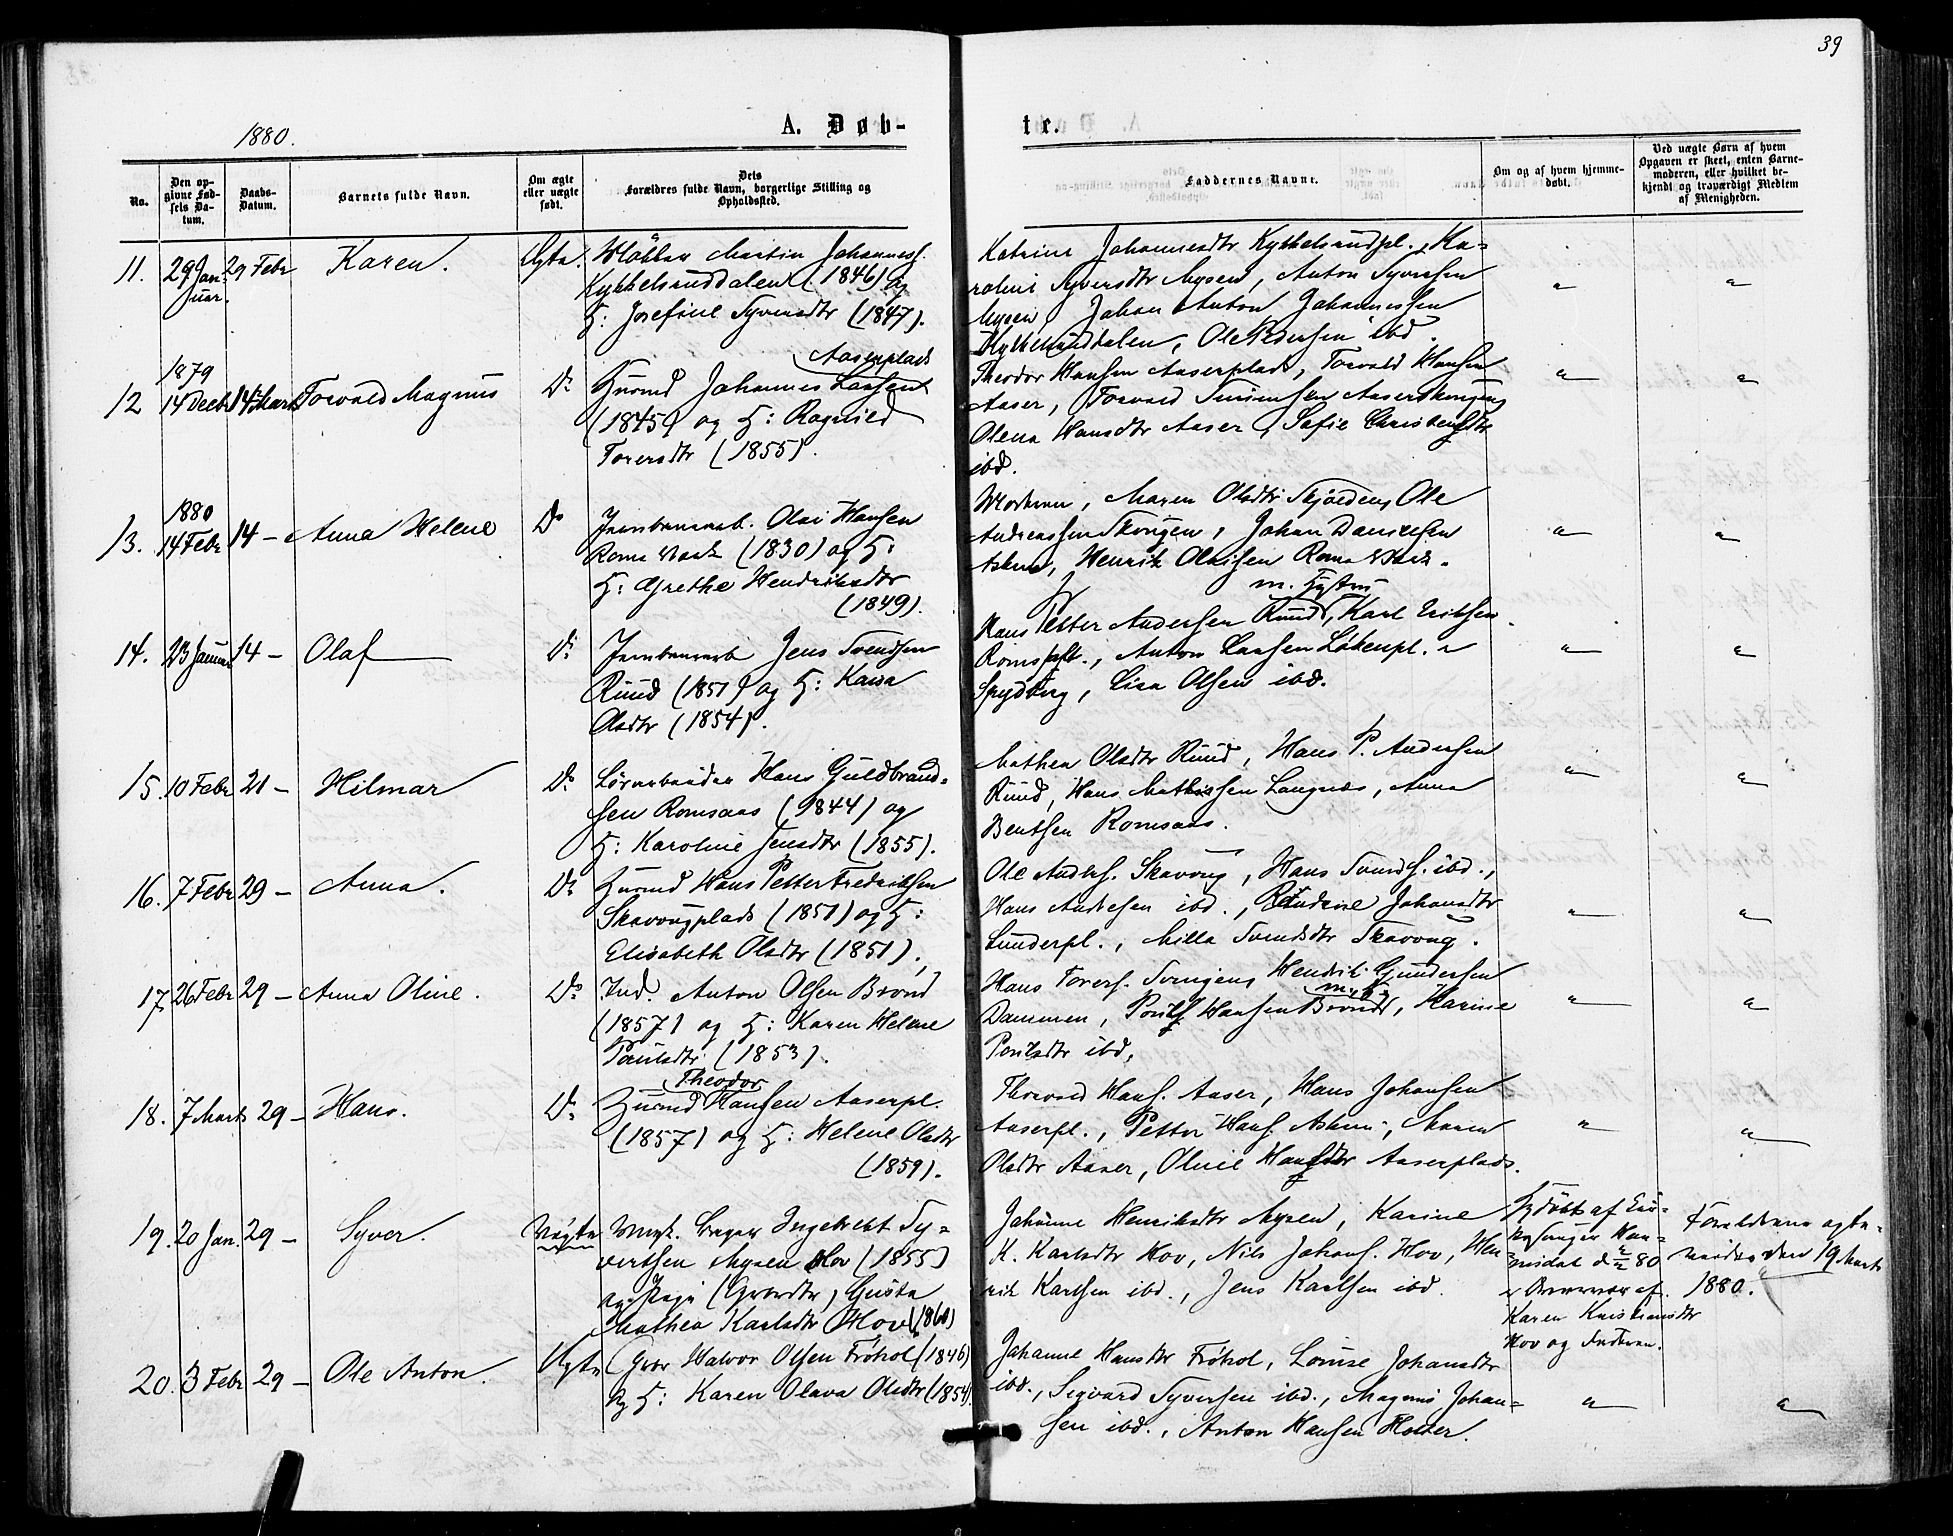 39
1880.
A. Døb-
te.
No.
Den op-
givne Fød-
sels Da-
tum.
Daabs-
Datum.
Barnets fulde Navn.
Om ægte
eller uægte
født.
Dets
Forældres fulde Navn, borgerlige Stilling og
Opholdssted.
Faddernes Navne.
Om og af hvem hjemme-
døbt.
Ved uægte Børn af hvem
Opgaven er skeet, enten Barne-
moderen, eller hvilket be-
kjendt og troværdigt Medlem
af Menigheden.
11. 29 Jan- 29 Febr Karen. Ægte. Martin Johannesf.
uar.
Kykkelsruddalen (1846) og
H: Josefine Syversdtr (1847).
Katrine Johannesdtr Kykkelsrudpl., Ka-
roline Syversdtr Mysen, Anton Syversen
Mysen, Johan Anton Johannessen
Kykkelsruddalen, Ole Pedersen ibd.
1879
12 14 Decbr 14 Marts Torvald Magnus Do Husmd Johannes Larsen
Aaserplads
(1845) og H: Ragnild
Torersdtr (1855).
Theodor Hansen Aaserplads, Torvald Hansen
Aaser, Torvald Simensen Aaserskougen
Olena Hansdtr Aaser, Sofie
ibd.
1880
13. 14 Febr 14 — Anna Helene Do Jernbanearb. Olai Hansen
Roms (1830) og H:
H: Grethe Hendriksdtr
(1849).
Moderen, Maren Olsdtr Ole
Andreassen Skougen, Johan Danielsen
Askim, Henrik Olaisen Roms
14. 23 Januar 14 — Olaf Do Jernbanearb Jens Svendsen
Ruud (1851) og H: Karen
Olsdtr (1854).
m. Hustru
Hans Petter Andersen Ruud, Karl Eriksen
Anton Larsen Løkenpl. i
Spydberg, Lisa Olsen ibd.
15. 10 Febr 21 — Hilmar Do Hans Guldbrand-
sen Romsaas (1844) og
H: Karoline Jensdtr (1855).
Mathea Olsdtr Ruud, Hans P. Andersen
Ruud, Hans Mathissen Langnæs, Anna
Bentsen Romsaas.
16. 7 Febr 29 — Anna. Do Husmd Hans Petter Fredriksen
Skavougplads (1851) og H:
Elisabeth Olsdtr (1851).
Ole Andersf. Skavoug, Hans Svendsf. ibd.,
Hans Andresen ibd., Johansdtr
Lunderpl., Milla Svendsdtr Skavoug.
17. 26 Febr 29 — Anna Oline. Do Ind. Anton Olsen Brond
(1857) og H: Karen Helene
Poulsdtr (1853).
Hans Torersf. Henrik Gundersen
m. H.
Dammen, Poul Hansen Brond, Karine
Poulsdtr ibd,
18. 7 Marts 29 — Hans. Do Husmd Hansen Aaserpl.
Theodor
(1857) og H: Helene Olsdtr
(1859).
Thorvald Hansf. Aaser, Hans Johansen
Aaserpl., Petter Hansf. Askim, Maren
Olsdtr Aaser, Oline Hansdtr Aaserplads.
19. 20 Jan. 29 — Syver. Uægte Ungk. Bager Ingebrekt Sy-
vertsen Mysen Hov (1855)
og Pige (Grdmdtr) Gusta
Mathea Karlsdtr Hov (1860)
Johanne Henriksdtr Mysen, Karine
K. Karlsdtr Hov, Nils Johansf. Hov, Hen-
rik Karlsen ibd., Jens Karlsen ibd.
Hjdøbt af
80
Karen Kristiansdtr
Hov og
Forældrene ægte-
viedes den 19 Marts
1880.
20. 3 Febr 29 — Ole Anton. Ægte Halvor Olsen Frøhol (1846)
og H: Karen Olava Olsdtr (1854).
Johanne Hansdtr Frøhol, Louise Johansdtr
ibd., Sigvard Syversen ibd., Magnus Johan-
sen ibd., Anton Hansen Holter.